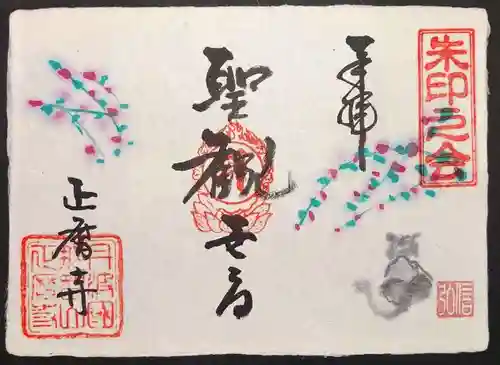 朱印之会
奉拝
聖観世音
正暦寺
信弘